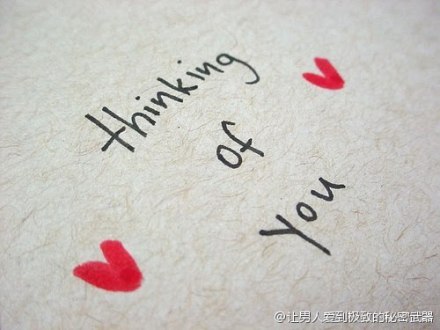 thinking
of
you
@让男人爱到极致的秘密武器